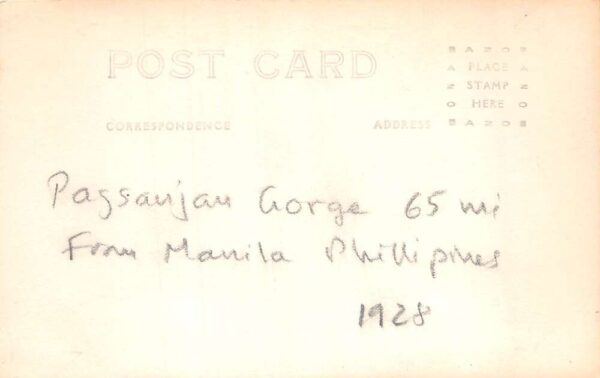 POST CARD
AZO
PLACE
STAMP
HERE
AZO
CORRESPONDENCE
ADDRESS
Pagsanjan Gorge 65 mi
From Manila Phillipines
1928